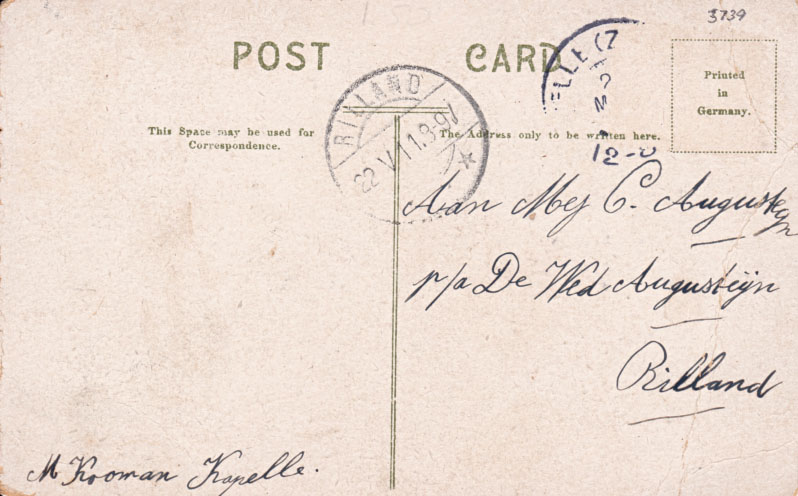 3739
POST CARD
Printed
in
Germany.
This Space may be used for
Correspondence.
The Address only to be written here.
RILLAND
22 V 11.8-9V
ELLE (Z
12-
Aan Mej C. Augusteyn
p/a De Wed Augusteijn
Rilland
M Kooman Kapelle.